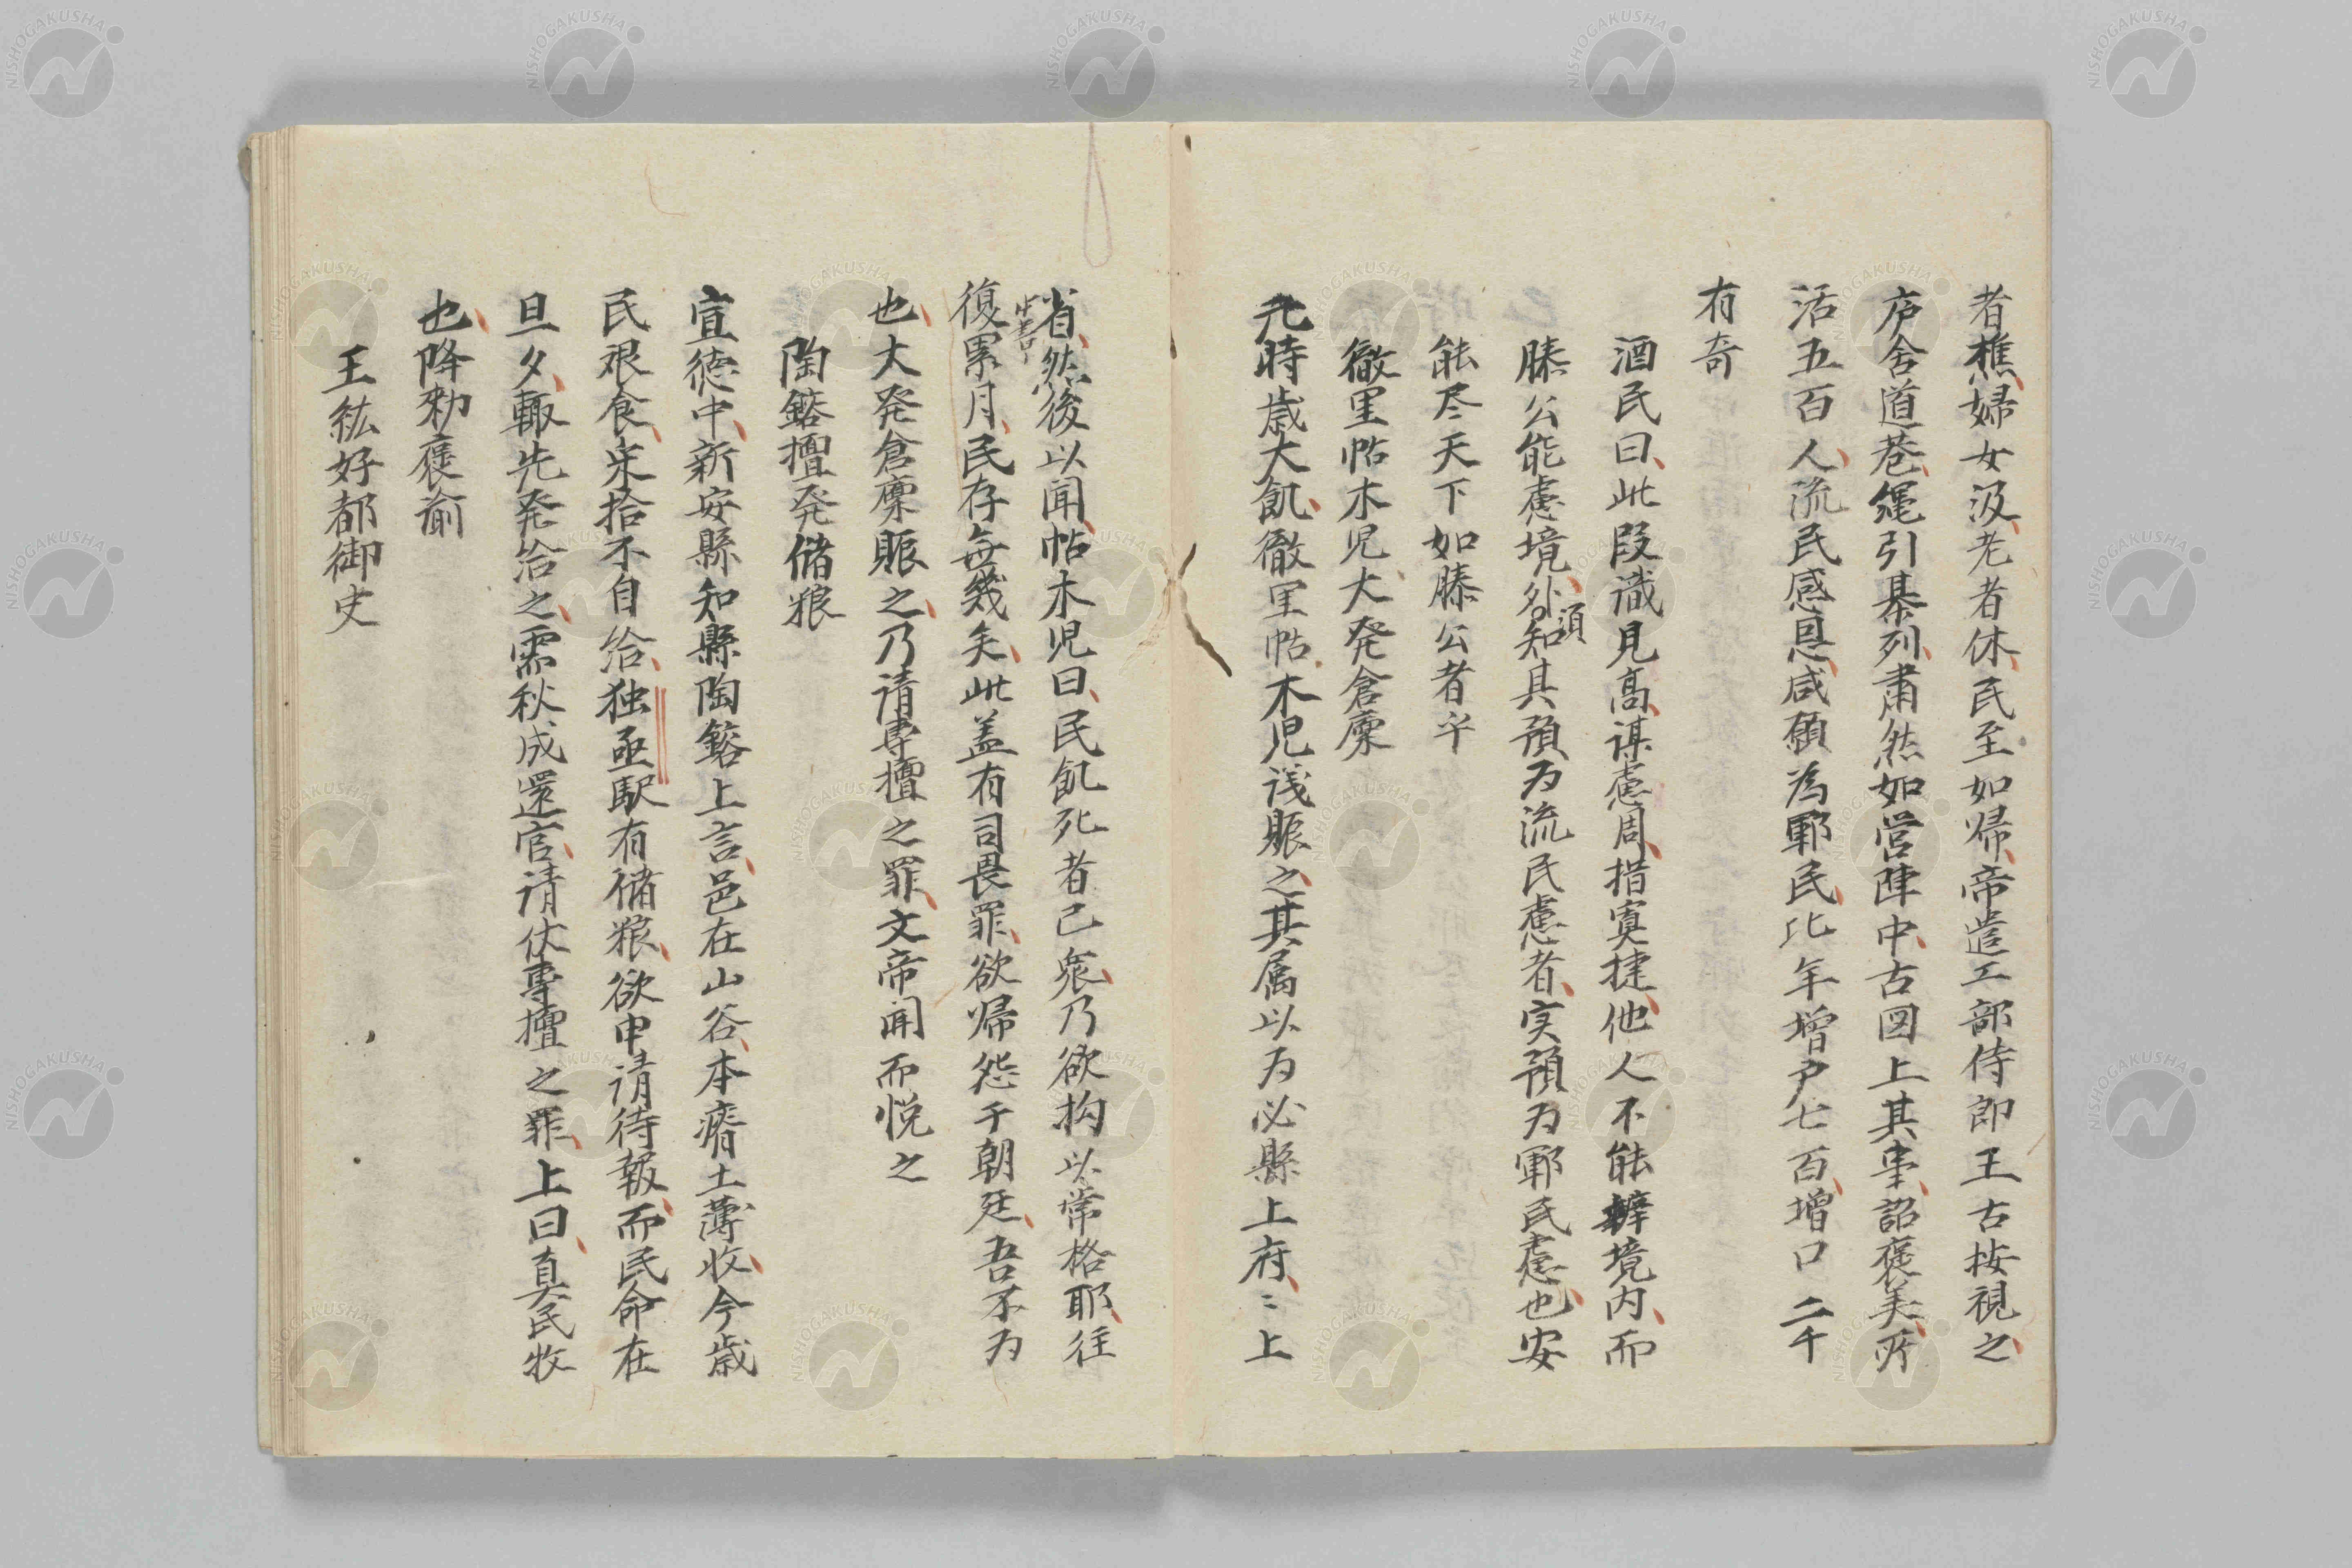 者樵、婦女汲、老者休、民至如帰、帝遣工部侍郎王古按視之、
庐舍道巷、縄引碁列、肅然如営陣中、古図上其事、詔褒美、所
活五百人、流民感恩、咸願為鄆民、比年増戸七百、増口二千
有奇
酒民曰、此段識見高、謀慮周、措寘捷、他人不能辦境内、而
滕公能慮境外、須知其預为流民慮者、実預为鄆民慮也、安
能尽天下如滕公者乎
徹里帖木児大発倉廩
元時歳大飢、徹里帖木児議賑之、其属以为必縣上府、〻上
省、然後以聞、帖木児曰、民飢死者已衆、乃欲拘以常格耶、往
中書
復累月、民存無幾矣、此盖有司畏罪、欲帰怨于朝廷、吾不为
也、大発倉廩賑之、乃请專擅之罪、文帝聞而悦之
陶鎔擅発储粮
宣徳中、新安縣知縣陶鎔上言、邑在山谷、本瘠土薄收、今歳
民艰食、采拾不自给、独亟駅有储粮、欲申请待報、而民命在
旦夕、輙先発给之、需秋成還官、请伏專擅之罪、上曰、真民牧
也、降勅褒谕
王紘好都御史
NISHOGAKUSHA